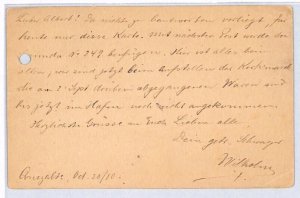 Lieber Albert! Da nichts zu beantworten vorliegt, für
heute nur diese Karte. Mit nächster Post werde der
No 249 beifügen. Hier ist alles beim
alten, wir sind jetzt beim
die am 2 Sept abgegangenen Waaren sind
bis jetzt im Hafen noch nicht angekommen.
Herzliche Grüsse an Euch Lieben alle.
Dein Schwager
Wilhelm
Oct. 20/80.